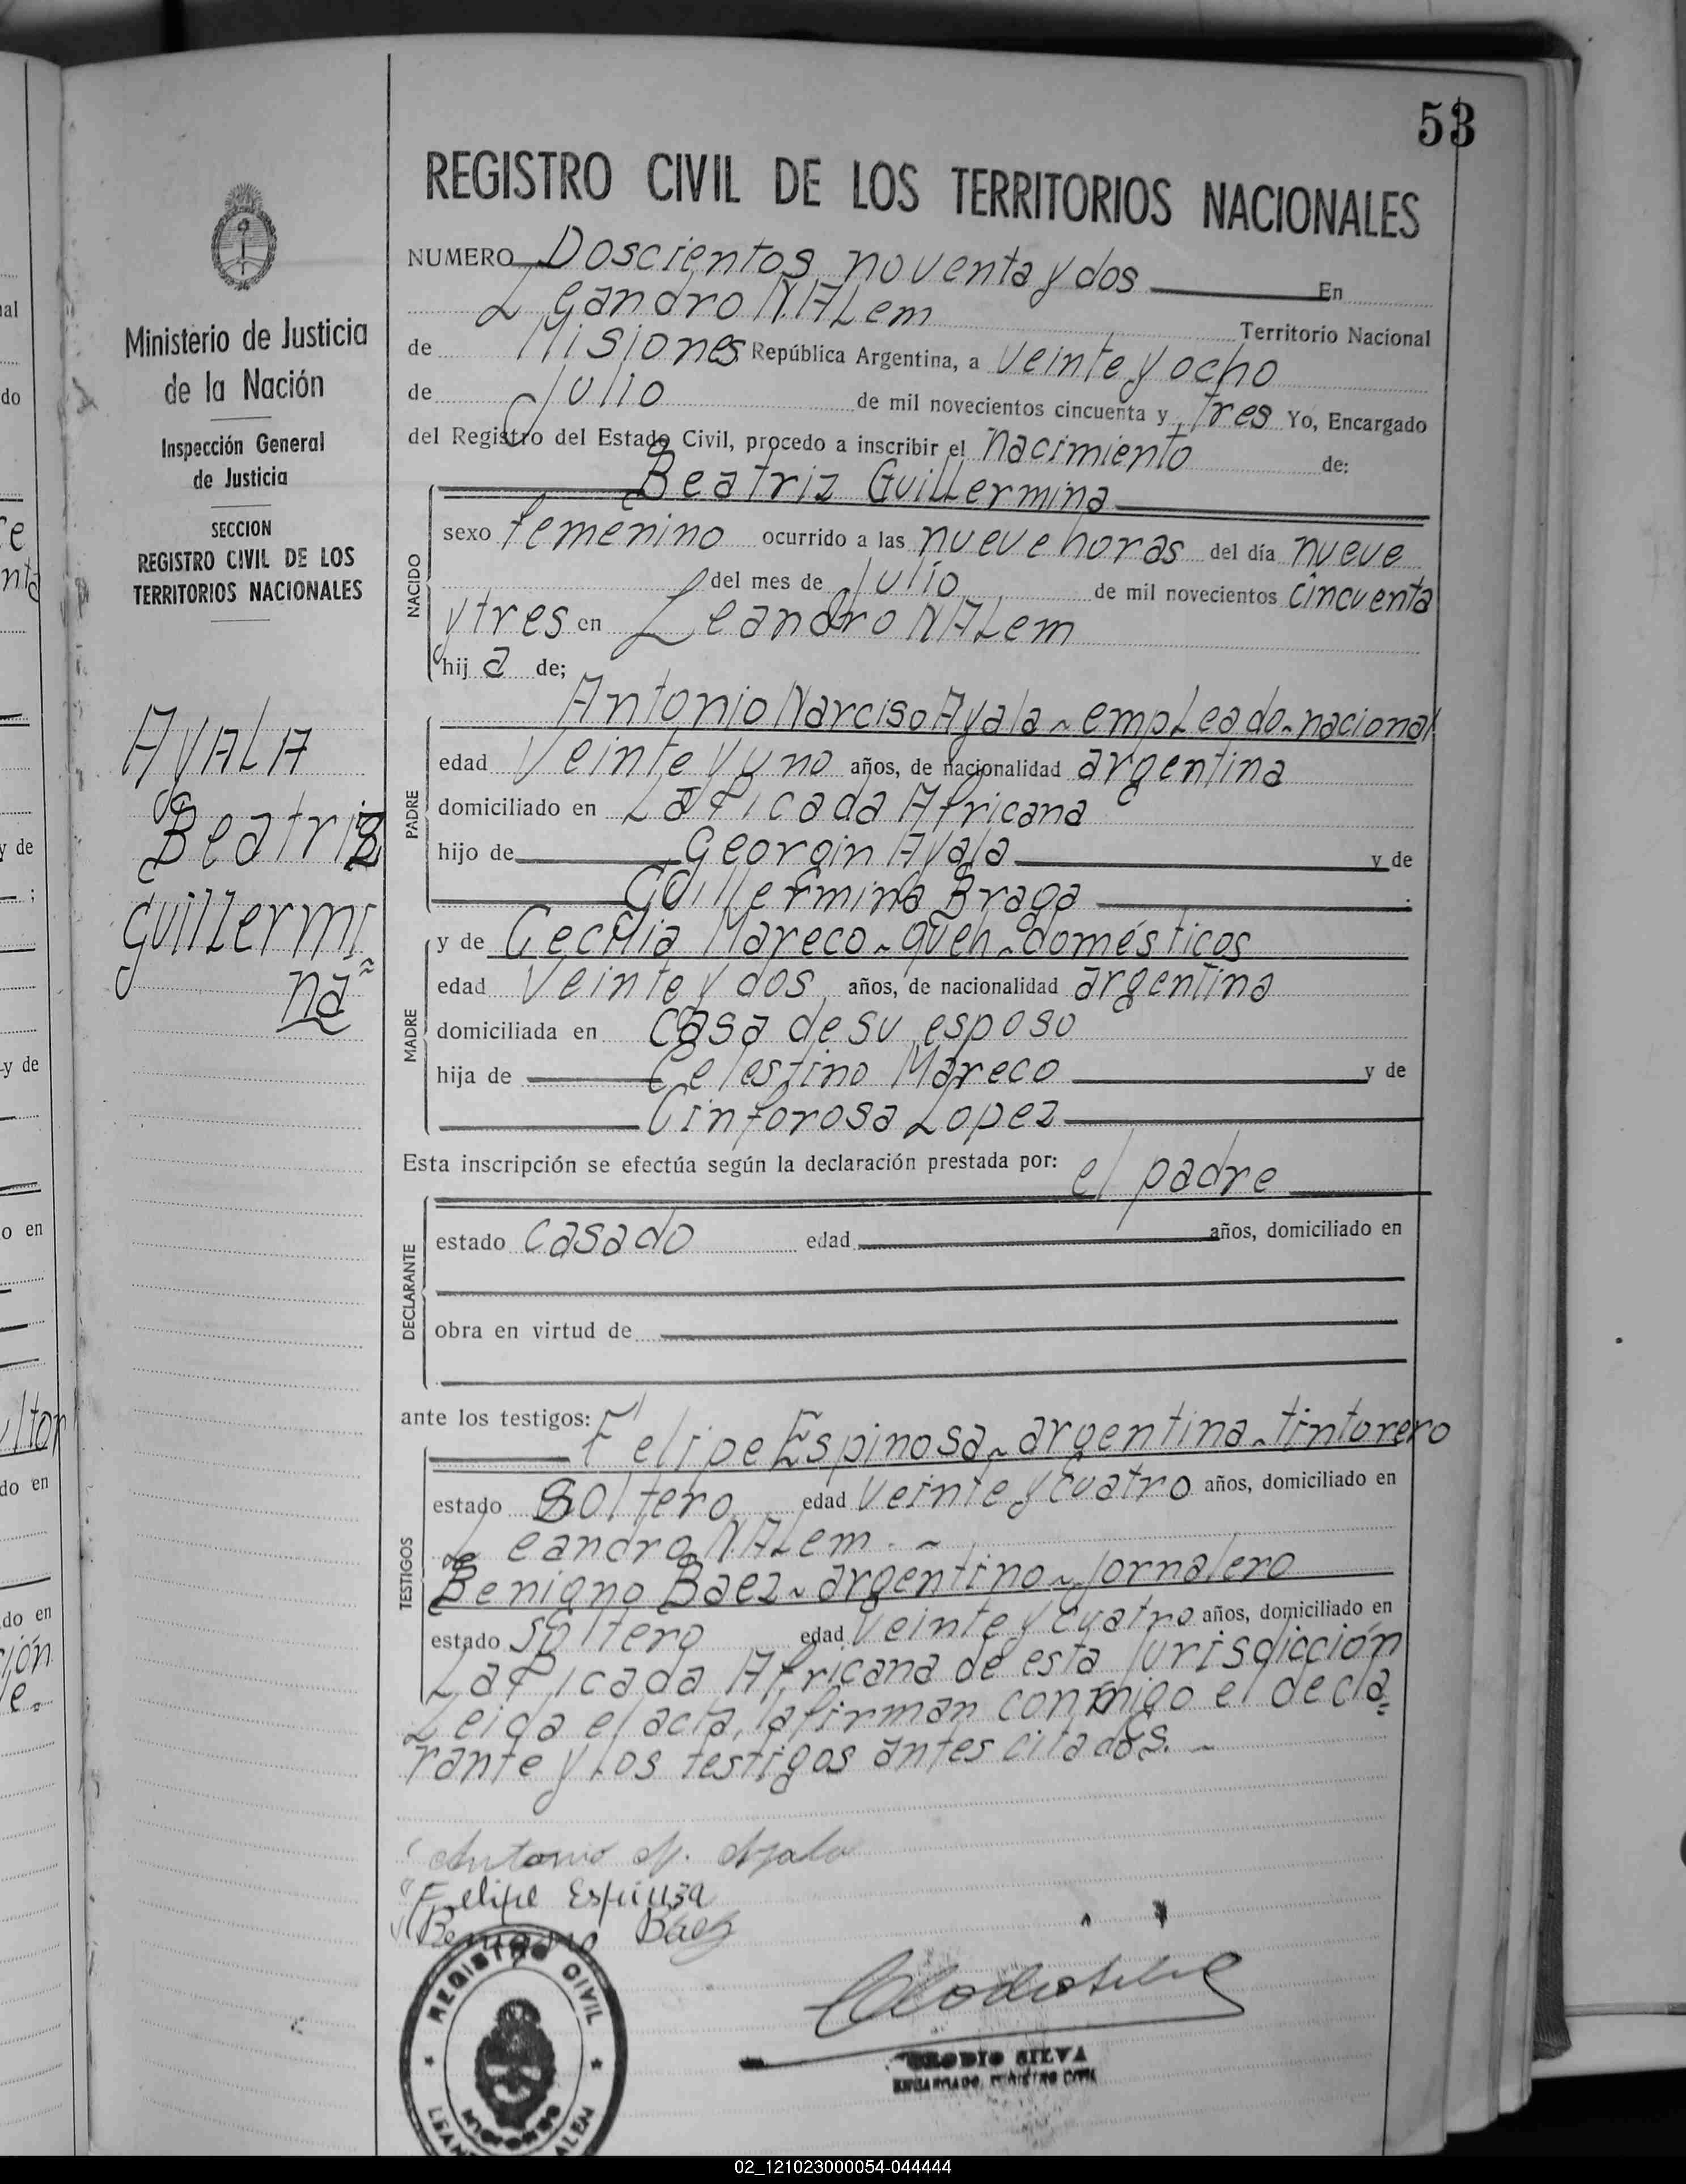 53
REGISTRO CIVIL DE LOS TERRITORIOS NACIONALES
Ministerio de Justicia
de la Nación
Inspección General
de Justicia
SECCION
REGISTRO CIVIL DE LOS
TERRITORIOS NACIONALES
AyALA
Beatriz
Guillermi
na
NUMERO Doscientos noventa y dos En
Leandro N. ALem Territorio Nacional
de Misiones República Argentina, a veinte y ocho
de Julio de mil novecientos cincuenta y tres Yo, Encargado
del Registro del Estado Civil, procedo a inscribir el nacimiento de:
Beatriz Guillermina
NACIDO
sexo femenino ocurrido a las nueve horas del día nueve
del mes de Julio de mil novecientos cincuenta
y tres en Leandro N ALem
hij a de;
PADRE
Antonio Narciso Ayala ~ empLeado ~ nacional
edad Veinte y uno años, de nacionalidad argentina
domiciliado en La Picada Africana
hijo de Georgin Ayala y de
Guillermina Braga
MADRE
y de Cecilia Mareco ~ queh ~ domésticos
edad Veinte y dos años, de nacionalidad argentina
domiciliada en casa de su esposo
hija de Celestino Mareco y de
Cinforosa Lopez
Esta inscripción se efectúa según la declaración prestada por: el padre
DECLARANTE
estado casado edad años, domiciliado en
obra en virtud de
ante los testigos:
TESTIGOS
Felipe Espinosa ~ argentina ~ tintorero
estado soltero edad veinte y cuatro años, domiciliado en
Leandro N. ALem. ~
Benigno Baez ~ argentino ~ jornalero
estado soltero edad Veinte y cuatro años, domiciliado en
La Picada Africana de esta jurisdicción
Leida el acta, la firman conmigo el decla=
rante y Los testigos antes citados. ~
Antonio N. Ayala
Felipe Espinoza
Benigno Baez
REGISTRO CIVIL
MISIONES
CLODIO SILVA
ENCARGADO, REGISTRO CIVIL
02_121023000054-044444